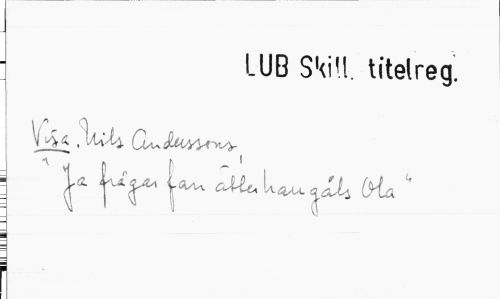 LUB Skill. titelreg.
Visa. Nils Anderssons,
"Ja frågar fan ätter han gåls Ola"